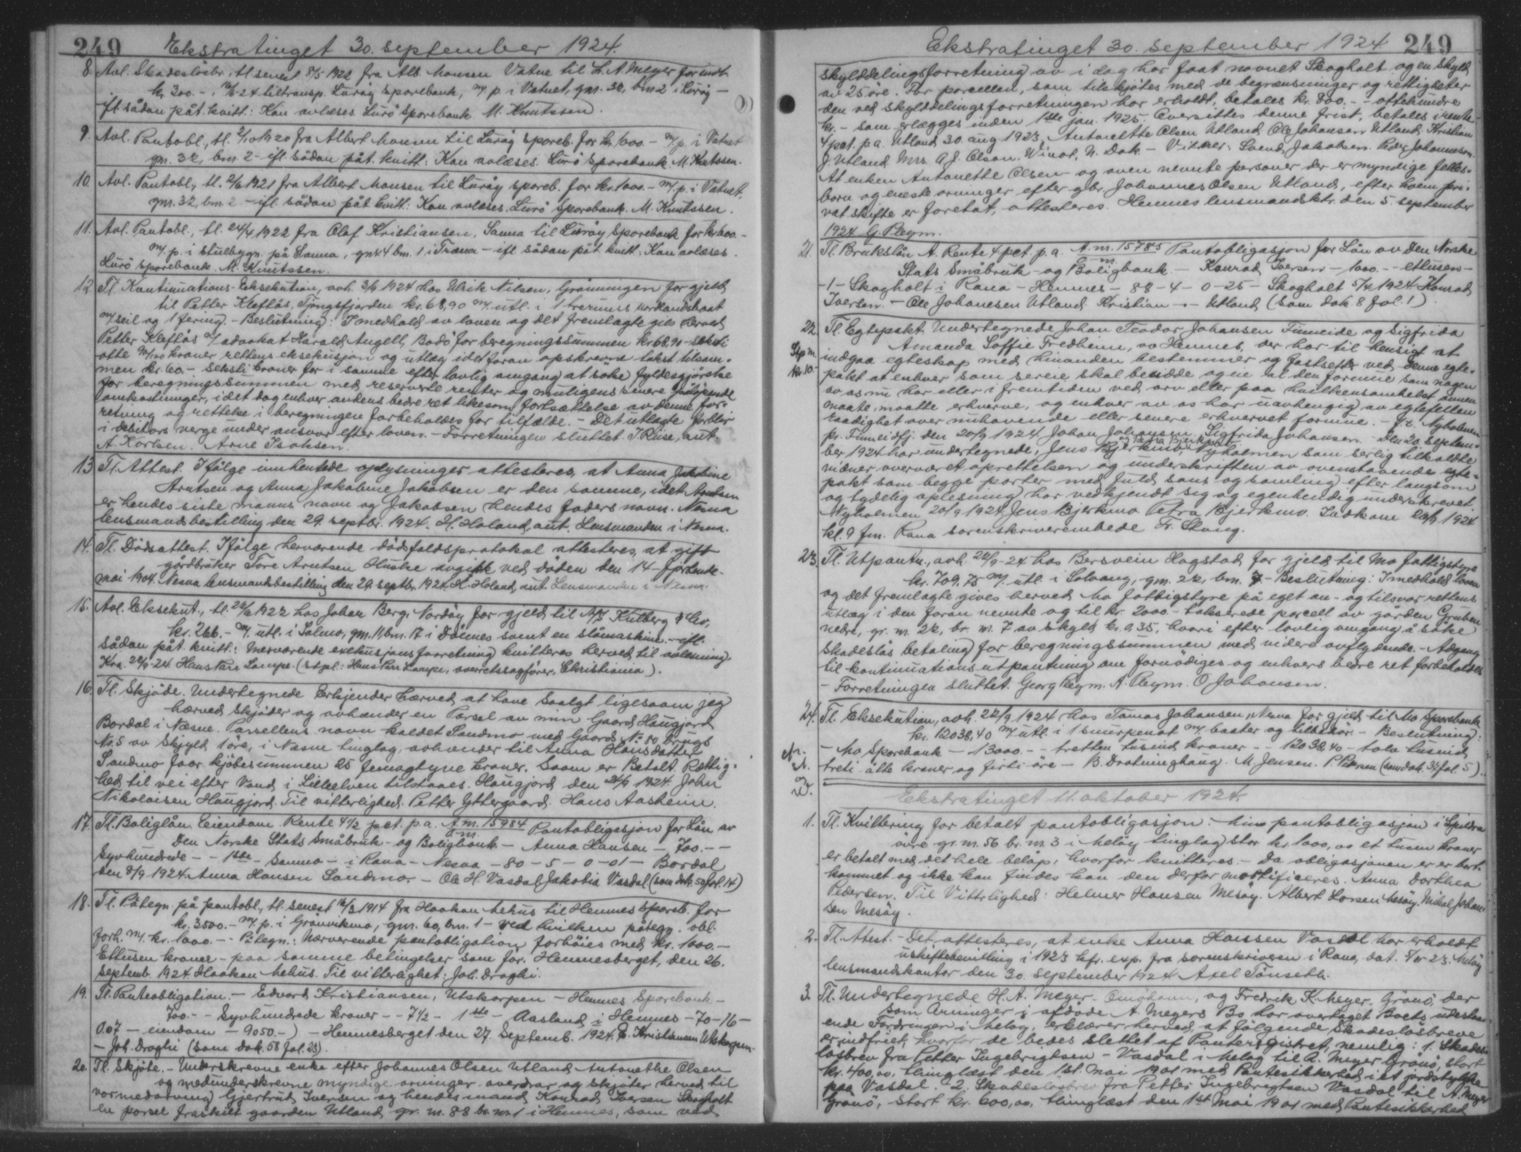 249 Ekstratinget 30. september 1924.
8. Avl. Skadeslösbr. tl. senest 8/5 1922 fra Alb. Monsen Vatne til L. A. Meyer for indt.
kr. 300.- , 24 til transp. Lurøy Sparebank, m/ p. i Vatnet, gm. 32, bm 2 i Lurøy -
ifl. sådan påt. kvitt: Kan avlæses Lurö Sparebank M. Knutssen.
9. Avl. Pantobl. tl. 1920 fra Albert Monsen til Lurøy Spareb. for kr. 1600.- m/ p. i Vatnet
gm. 32, bm 2 - ifl. sådan påt. kvitt: Kan avlæses. Lurö Sparebank. M. Knutssen.
10. Avl. Pantobl. tl. 1921 fra Albert Monsen til Lurøy spareb. for kr. 1000.- m/ p. i Vatnet,
gm. 32, bm 2 - ifl. sådan påt. kvitt: Kan avlæses. Lurö Sparebank. M. Knutssen.
11. Avl. Pantobl. tl. 1922 fra Olaf Kristiansen, Sanna til Lurøy Sparebank for kr. 600.-
m/ p. i stuebygn. på Sanna, gm 44 bm. 1 i Træna - ifl. sådan påt. kvitt. Kan avlæses.
Lurö Sparebank M. Knutssen.
12. Tl. Kontinuations-Eksekution, avh. 3/9 1924 hos Ulrik Nilsen, Grönningen for gjeld
til Petter Kleflös, Tjongsfjorden kr. 68,90 m/ utl. i
m/ seil og 1 fering - Beslutning: I medhold av loven og det fremlagte gives herved
Petter Kleflös v/ advokat Harald Angell, Bodö for beregningssummen kr. 68,90
otte 90/100 kroner rettens eksekusjon og utlæg i det foran opskrevne takst tilsam-
men kr. 60.- seksti kroner for i samme efter lovlig omgang at söke fyldestgjörelse
for beregningssummen med reserverte renter og muligens senere
omkostninger, i det dog enhver andens bedre ret likesom fortsættelse av denne for-
retning og rettelse i beregningen forbeholdes for tilfælde. - Det utlagte forblir
i debitors verge under ansvar efter loven. - Forretningen sluttet
A. Korben. Arne Isaksen.
13. Tl. Attest. Ifölge innhentede oplysninger attesteres, at Anna Jakobine
Arntsen og Anna Jakobine Jakobsen er den samme, idet Arntsen
er hendes siste manns navn og Jakobsen hendes faders navn. Nesna
lensmandsbestilling den 29. septbr. 1924. H. Holand, aut. Lensmannen i Nesna.
14. Tl. Dödsattest. Ifölge herværende dödsfaldsprotokol attesteres, at gift
gårdbruker Tore Arntsen Husbe avgikk ved döden den 14 fjortende
mai 1904. Nesna lensmandsbestilling den 29. septbr. 1924. H. Holand, aut. Lensmannen i Nesna.
15. Avl. Eksekut., tl. 1922 hos Johan Berg, Nordøy for gjeld til A/S Kulberg & Co,
kr. 266.- m/ utl. i Salmo, gm. 11 bm. 17 i Dönnes samt en slåmaskin. - ifl.
sådan påt. kvitt: Nærværende exekusjonsforretning kvitteres herved til avlæsning
Kra. 24 Hans Chr. Lampe (stpl: Hans Chr. Lampe, overretssagförer, Christiania).
16. Tl. Skjöde. Undertegnede Erkjender hærved, at have Solgt ligesaam jeg
hærved Skjöder og avhænder en Parsel av min Gaard Haugjord
Bordal i Næsne. Parsellens navn kaldet Sandmo med Gaards N. 80 Brugs
No 5 av Skyld 1 öre, i Nesne tinglag avhænder til Anna Hansdatter
Sandmo foor kjöbesummen 25 femogtyve kroner. Soom er Betalt Rettig-
hed til vei efter Vand i Lilleelven tilstaaes. Haugjord den 1924 John
Nikolaisen Haugjord. Til vitterlighed. Petter Yttergaard Hans Aasheim.
17. Tl. Boliglån Eiendom Rente 4½ pct. p.a. A.m. 15984 Pantobligasjon for Lån av
Den Norske Stats Småbruk- og Boligbank - Anna Hansen - 700.- -
Syvhundrede - 1ste - Sanmo - i Rana - Nesna - 80 - 5 - 0 - 01 - Bordal
den 9/9 1924 Anna Hansen Sandmo - Ole H. Vasdal Jakobia Vasdal (som dok. 50 fol. 14)
18. Tl. Påtegn. på pantobl., tl. senest 1914 fra Haakon Mehus til Hemnes Spareb. for
kr. 3500.- m/ p. i Grönvikmo, gm. 60, bm. 1 - ved hvilken påtegn. obl.
forh. m/ kr. 1000.- - Ptegn.: Nærværende pantobligation forhöies med kr. 1000.-
Ettusen kroner - paa samme betingelser som för. Hemnesberget, den 26.
septemb. 1924 Haakon Mehus. Til vitterlighet: Joh. Draghi.
19. Tl. Panteobligation. - Edvard Kristiansen, Utskarpen - Hemnes Sparebank -
700.- - Syvhundrede kroner - - 7½ - 1ste - Aasland i Hemnes - 70 - 16 -
0.07 - eiendom - 9050.-) - Hemnesberget den 27. Septemb. 1924. E. Kristiansen Utskarpen
- Joh. Draghi (som dok. 58 fol. 23).
20. Tl. Skjöte. - Underskrevne enke efter Johannes Olsen Utland Antonethe Olsen
og medunderskrevne myndige arvinger overdrar og skjöter herved til
vormedarving Gjertrud Iversen og hendes mand Konrad Iversen Skogholt
en parsel fraskilt gaarden Utland, gr. m. 88 br. nr. 1 i Hemnes, som ved
Ekstratinget 30. september 1924 249
skylddelingsforretning av i dag har faat navnet Skogholt og en skyld
av 25 öre. For parcellen, som tilskjötes med de begrænsninger og rettigheter
den ved skylddelingsforretningen har erholdt, betales kr. 800.- - ottehundre
kr. - som erlægges inden 1ste jan. 1925. Oversittes denne frist, betales rente
4 pct. p.a. Utland 30 aug 1923. Antonethe Olsen Utland Ole Johansen Utland, Kristian
J. Utland Mrs A. J. Olson. Winot, N. Dak - Vitner: Svend Jakobsen. Peder Johannesen
At enken Antonethe Olsen og oven nevnte personer der er myndige felles-
born og eneste arvinger efter gbr. Johannes Olsen Utland, efter hvem pri-
vat skifte er foretat, attesteres. Hemnes lensmandsktr. den 5 september
1924 G. Pleym.
21. Tl. Brukslån A. Rente 4 pct. p.a. A.m. 15785 Pantobligasjon for Lån av Den Norske
Stats Småbruk- og Boligbank - Konrad Iversen - 1000.- - ettusen -
-1 - Skogholt i Rana - Hemnes - 88 - 4 - 0 - 25 - Skogholt 5/9 1924 Konrad
Iversen - Ole Johansen Utland Kristian - Utland (som dok 8 fol. 1)
22. Tl. Egtepakt. Undertegnede Johan Teodor Johansen Funeide og Sigfrida
Amanda Soffie Fredheim, av Hemnes, der har til hensigt at
indgaa egteskap med hinanden bestemmer og fastsetter ved denne egte-
pakt at enhver som særeie skal besidde og eie al den formue som nogen
av os nu har eller i fremtiden ved arv eller paa hvilkensomhelst annen
maate maatte erhverve, og enhver av os har uavhengig av egtefellen
raadighet over nuhavende eller senere erhvervet formue. - Nyholmen
pr. Funeide, den 20/9 1924 Johan Johansen Sigfrida Johansen. Den 20 septem-
ber 1924 har undertegnede, Jens Bjerkmo og Petra Bjerkmo Nyholmen som særlig tilkaldte
vidner overværet oprettelsen og underskriften av ovenstaaende egte-
pakt som begge parter med fuld sans og samling efter langsom
og tydelig oplesning har vedkjendt sig og egenhendig underskrevet
Nyholmen 20/9 1924 Jens Bjerkmo Petra Bjerkmo. Indkom 1924
kl. 9 fm. Rana sorenskriverembede Fr. Skaug.
23. Tl. Utpantn., avh. 22/9-24 hos Bersvein Hagstad for gjeld til Mo fattigstyre
kr. 709,75 m/ utl. i Solvang, gm. 22, bm. 7 - Beslutning: I medhold loven
og det fremlagte gives herved Mo fattigstyre på eget an- og tilsvar rettens
utlæg i den foran nevnte og til kr. 2000.- takserede parcell av gården Gruben
nedre, gr. nr. 22, br. nr. 7 av skyld kr. 0.35, hvori efter lovlig omgang å söke
skadeslös betaling for beregningssummen med videre avflydende. - Adgang
til kontinuationsutpantning om fornödiges og enhvers bedre ret forbeholdes
- Forretningen sluttet. Georg Pleym. A. Pleym. O Johansen.
24. Tl. Eksekution, avh. 22/9 1924 hos Tomas Johansen, Nesna for gjeld til Mo Sparebank
kr. 12038,40 m/ utl. i 1 snurpenot m/ baater og tilbehör. - Beslutning:
- Mo Sparebank - 13000.- - tretten tusind kroner - - 12038,40 - tolv tusind
tretti åtte kroner og firti öre - B. Dratninghaug. M Jensen. P (som dok. 38 fol. 5)
Ekstratinget 11. oktober 1924.
1. Tl. Kvittering for betalt pantobligasjon - Min pantobligasjon i Spildra
gr. m. 56 br. m. 3 i Melöy tinglag stor kr. 1000,00 et tusen kroner
er betalt med det hele belöp, hvorfor kvitteres. - Da obligasjonen er er bort-
kommet og ikke kan findes kan den derfor mortificeres. Anna Dorthea
Pedersen. Til Vitterlighed: Helmer Hansen Mesöy. Albert Larsen Mesöy. Nikol. Johan-
sen Mesöy.
2. Tl. Attest. - Det attesteres, at enke Anna Hanssen Vasdal har erholdt
uskiftebevilling i 1923 hf. exp. fra sorenskriveren i Rana, dat. 23. Melöy
lensmandskontor den 30. september 1924. Axel Tönseth.
3. Tl. Undertegnede H. A. Meyer - og Fredrik K. Meyer, Grönö, der
som Arvinger i afdöde A. Meyers Bo har overtaget Boets udestaa-
ende Fordringer i Melöy, erklærer herved, at fölgende Skadeslösbreve
er indfriet, hvorfor de bedes slettet af Panteregistret, nemlig: 1. Skades-
lösbrev fra Petter Ingebrigtsen - Vasdal i Melöy til A. Meyer Grönö, stort
kr. 400,00, thinglæst den 1st Mai 1901 med Pantesikkerhed i et jordstykke
paa Vasdal. 2. Skadeslösbrev fra Petter Ingebrigtsen Vasdal til A. Meyer
Grönö, stort kr. 600,00, thinglæst den 1st Mai 1901 med Pantesikkerhed